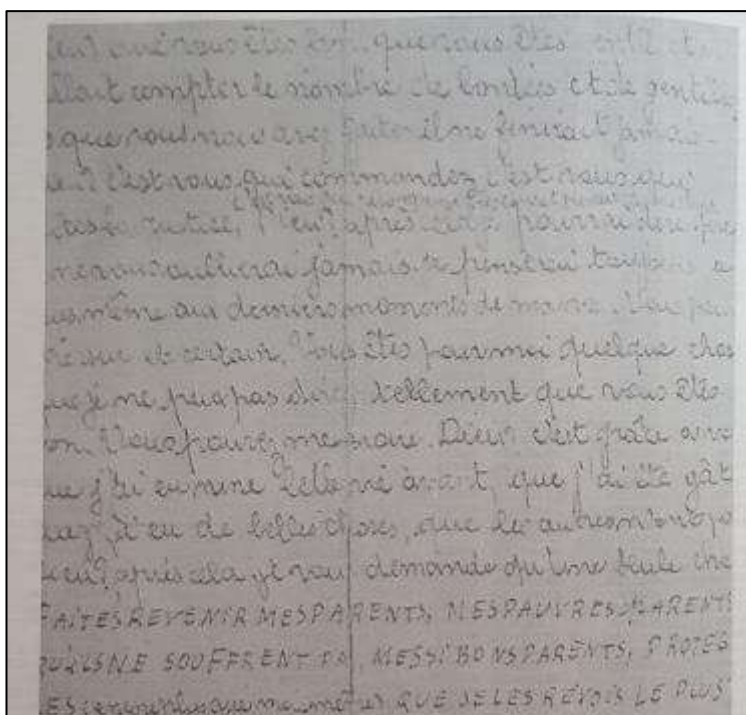 que vous êtes bon, que vous êtes et
llait compter le nombre de bontées et de gentille
que vous nous avez faites il ne finirait jamais
c'est vous qui commandez c'est vous qui
c'est vous qui
êtes la justice, après cela je pourrai dire
ne vous oublierai jamais. Je penserai toujours a
us même aux derniers moments de ma vie. Vous pou
sur et certain. Vous êtes pour moi quelque chos
que je ne peux pas dire, tellement que vous êtes
on. Vous pouvez me croire. Dieu? c'est grâce a vo
ue j'ai eu une belle vie avant, que j'ai été gât
j'ai eu de belles choses, que les autres n'ont pa
ieu? après cela je vous demande qu'une seule cho
FAITES REVENIR MES PARENTS, MES PAUVRES PARENTS
QU'ILS NE SOUFFRENT PAS, MES SI BONS PARENTS, PROTEG
LES (encore plus que moi-même) QUE JE LES REVOIS LE PLUS